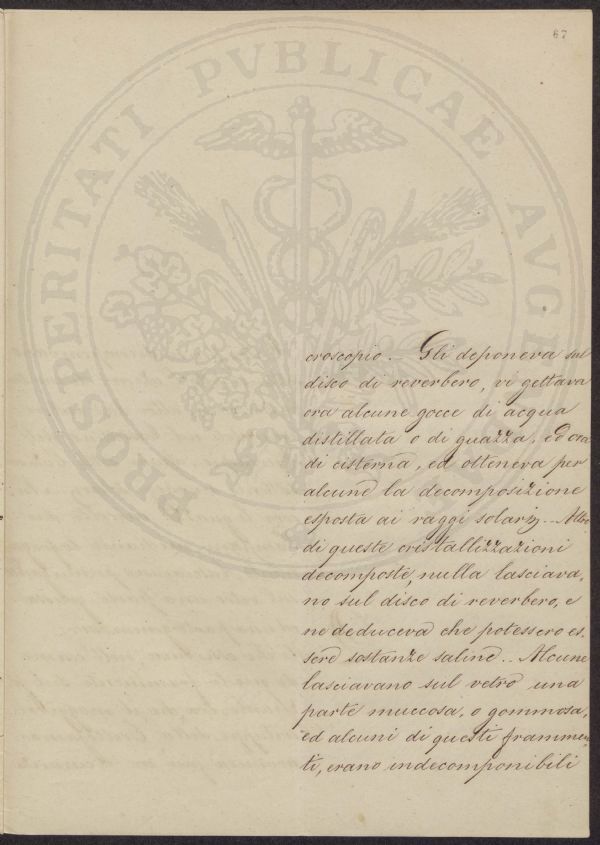 67
PROSPERITATI PVBLICAE AVGE
croscopio. — Gli deponeva sul
disco di reverbero, vi gettava
ora alcune gocce di acqua
distillata o di guazza, ed ora
di cisterna, ed otteneva per
alcune la decomposizione
esposta ai raggi solari. — Altre
di queste cristallizzazioni
decomposte, nulla lasciava,
no sul disco di reverbero, e
ne deduceva che potessero es,
sere sostanze saline.. Alcune
lasciavano sul vetro una
parte muccosa, o gommosa,
ed alcuni di questi frammen,
ti, erano indecomponibili